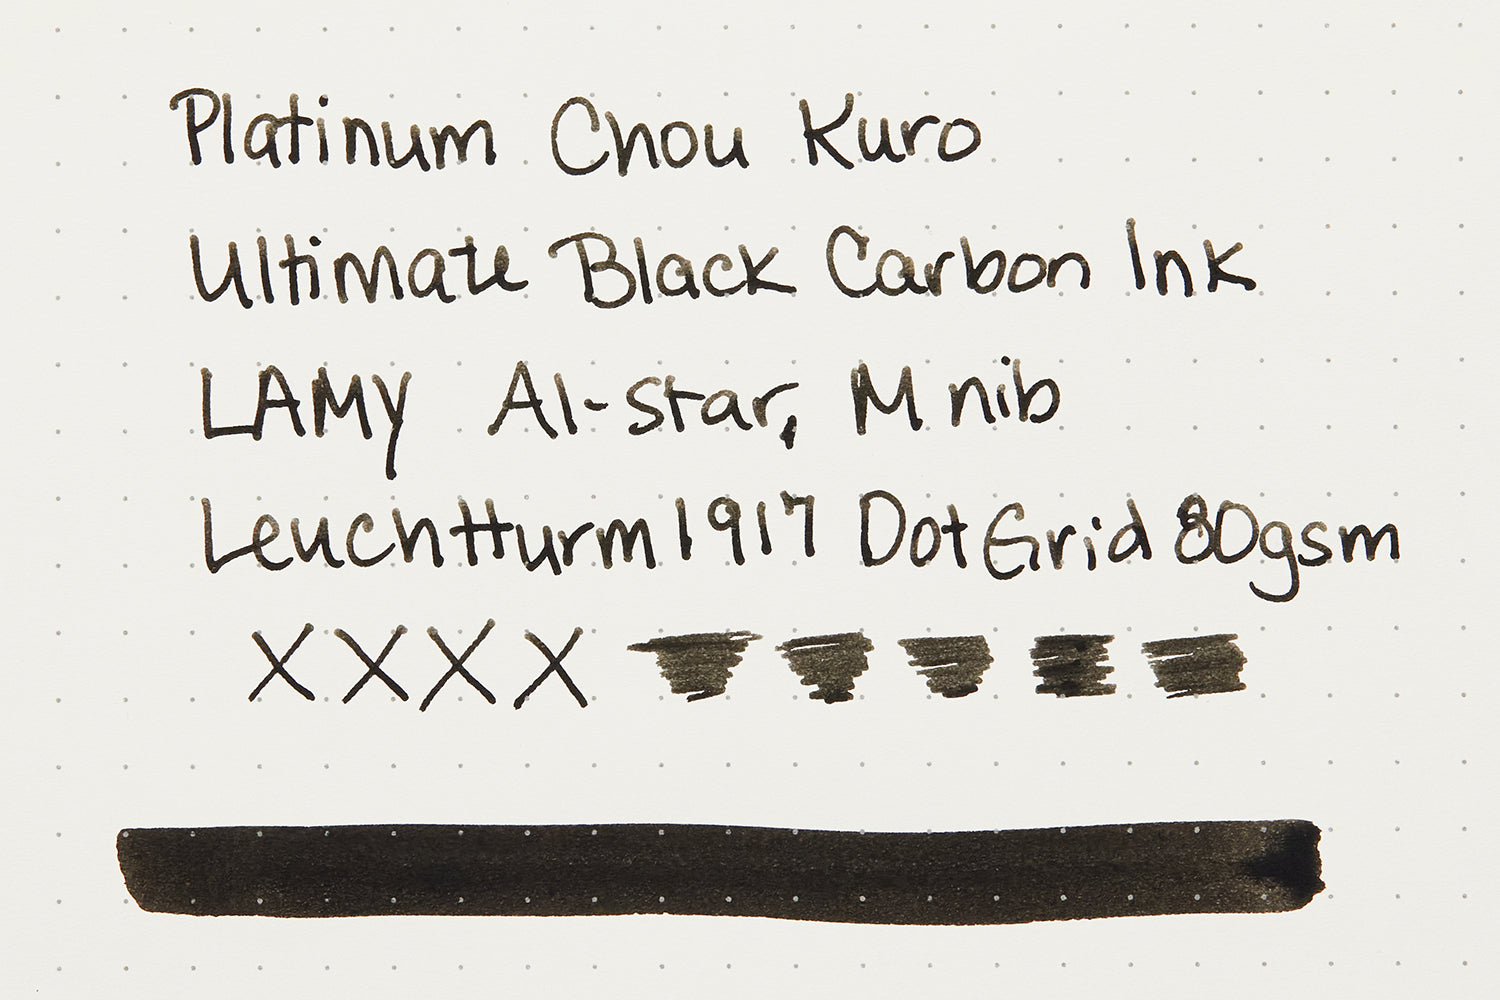 Platinum Chou Kuro
Ultimate Black Carbon Ink
LAMY Al-star, M nib
Leuchtturm1917 Dot Grid 80gsm
XXXX